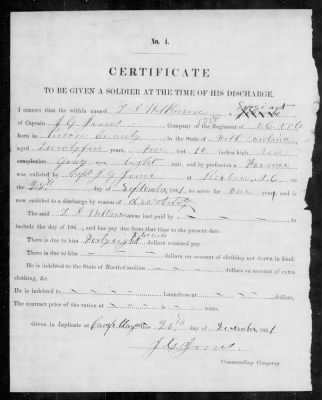 No. 4.
CERTIFICATE
TO BE GIVEN A SOLDIER AT THE TIME OF HIS DISCHARGE.
I CERTIFY that the within named
of Captain J G Jones Company of the Regiment of
born in County in the State of North Carolina
aged years, feet 10 inches high
complexion Gray eyes light hair, and by profession a Farmer
was enlisted by Capt J G Jones at N C on
the day of September 1861, to serve one year, and is
now entitled to a discharge by reason of disability
The said was last paid by — to
include the day of 186 , and has pay due from that time to the present date.
There is due to him dollars retained pay.
There is due to him — dollars on account of clothing not drawn in kind.
He is indebted to the State of North-Carolina — dollars on account of extra
clothing, &c.
He is indebted to — laundress at — dollars.
The contract price of the ration at — cents.
Given in duplicate at Camp day of December 1861
J. G. Jones
Commanding Company.